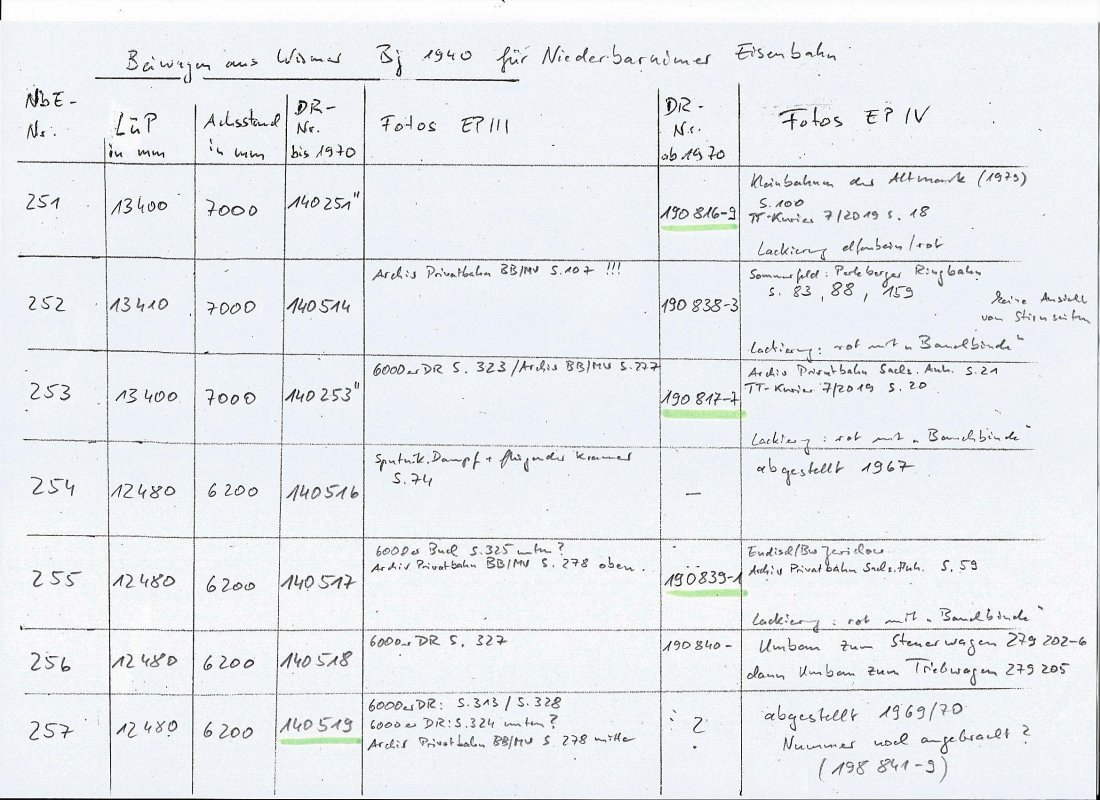 Beiwagen aus Wismar Bj 1940 für Niederbarnimer Eisenbahn
NbE-Nr.
LüP in mm
Achsstand in mm
DR-Nr. bis 1970
Fotos EP III
DR-Nr. ab 1970
Fotos EP IV
251
13400
7000
140 251"
190 816-9
Kleinbahnen der Altmark (1979)
S. 100
TT-Kurier 7/2019 S. 18
Lackierung elfenbein/rot
252
13410
7000
140514
Archiv Privatbahn BB/MV S.107 !!!
190 838-3
Sommerfeld: Perleberger Ringbahn
S. 83, 88, 159
keine Ansicht
von Stirnseiten
Lackierung: rot mit "Bauchbinde"
253
13400
7000
140 253"
6000er DR S. 323 / Archiv BB/MV S.277
190 817-7
Archiv Privatbahn Sachs. Anh. S. 21
TT-Kurier 7/2019 S. 20
Lackierg: rot mit "Bauchbinde"
254
12480
6200
140516
Sputnik, Dampf + fliegender Kramer
S. 74
–
abgestellt 1967
255
12480
6200
140517
6000er Buch S. 325 unten?
Archiv Privatbahn BB/MV S. 278 oben.
190839-1
Endisch/Bw Jerichow
Archiv Privatbahn Sachs. Anh. S. 59
Lackierung: rot mit "Bauchbinde"
256
12480
6200
140518
6000er DR S. 327
190 840-
Umbau zum Steuerwagen 279 202-6
dann Umbau zum Triebwagen 279 205
257
12480
6200
140519
6000er DR: S.313 / S.328
6000er DR: S.324 unten?
Archiv Privatbahn BB/MV S. 278 mitte
?
abgestellt 1969/70
Nummer noch angebracht?
(198 841-9)